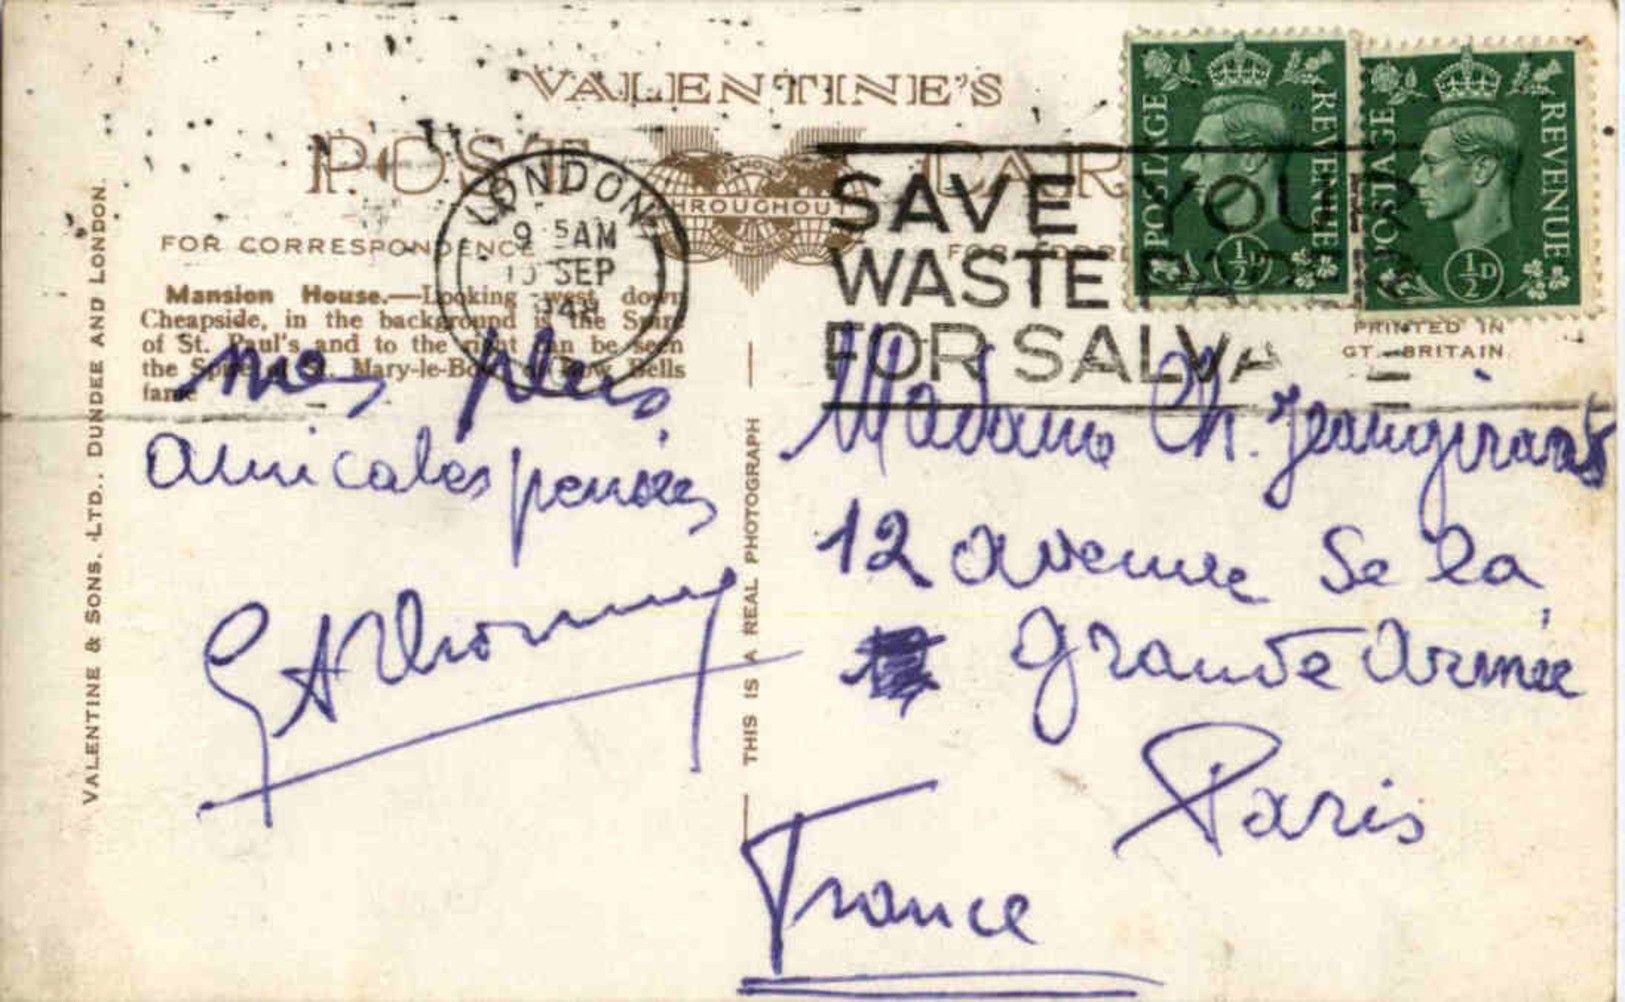 VALENTINE'S
POST CARD
THROUGHOUT
FOR CORRESPONDENCE
LONDON
9 15 AM
SEP
1948
SAVE YOUR
WASTE PAPER
FOR SALVAGE
POSTAGE REVENUE
½D
POSTAGE REVENUE
½D
PRINTED IN
GT. BRITAIN
Mansion House.—Looking west down
Cheapside, in the background is the Spire
of St. Paul's and to the right can be seen
the Spire of St. Mary-le-Bow of Bow Bells
fame
mes plus
amicales pensées
Madame Ch.
12 avenue de la
grande Armée
Paris
France
VALENTINE & SONS. LTD., DUNDEE AND LONDON.
THIS IS A REAL PHOTOGRAPH